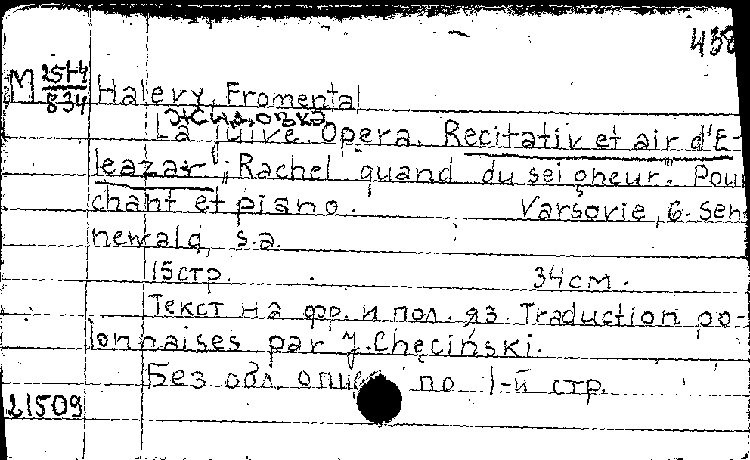 438
М 25+4/834 Halevy, Fromental
Жидовка
La juive. Opera. Recitativ et air d'E-
leazar "Rachel quand du seigneur." Pour
chant et piano. Varsovie, G. Sen-
newald, s.a.
15 стр. 34 см.
Текст на фр. и пол. яз. Traduction po-
lonnaises par J. Chęciński.
Без обл. опис по 1-й стр.
21509